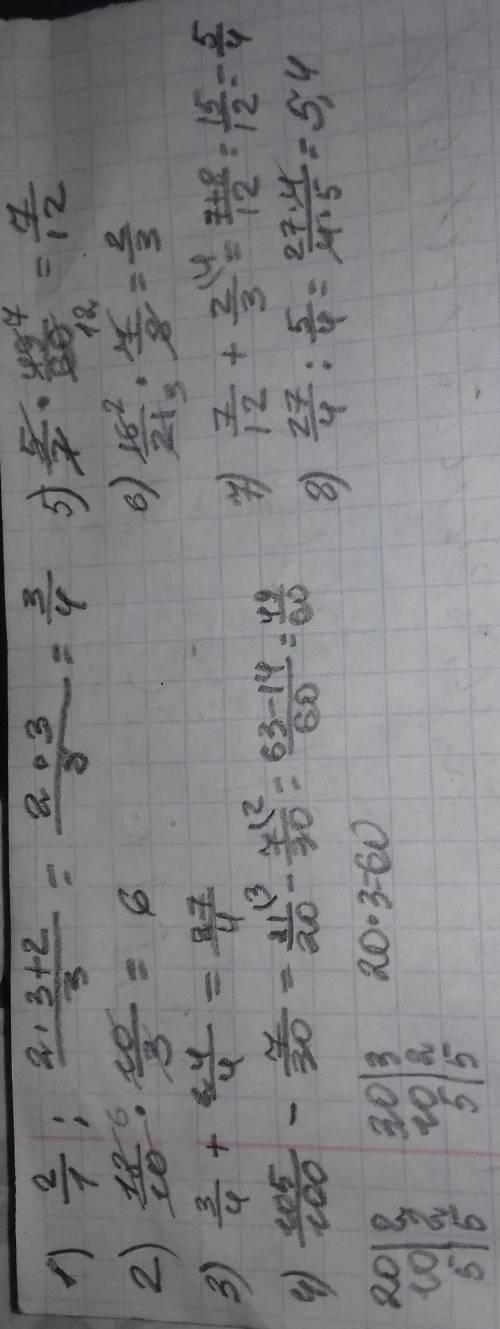 1) 2/1 : 2·3+2/3 = 2·3/8 = 3/4
2) 18 6/10 · 10/3 = 6
3) 3/4 + 24/4 = 27/4
4) 105/100 - 7/30 = 21/20 (3 - 7/30 (2 = 63-14/60 = 49/60
20|2 30|3 20·3=60
10|2 10|2
5|5 5|5
5) 5/7 · 49 7/60 12 = 7/12
6) 16 2/21 3 · 7/8 = 2/3
7) 7/12 + 2/3 (4 = 7+8/12 = 15/12 = 5/4
8) 27/4 : 5/4 = 27·4/4·5 = 5,4